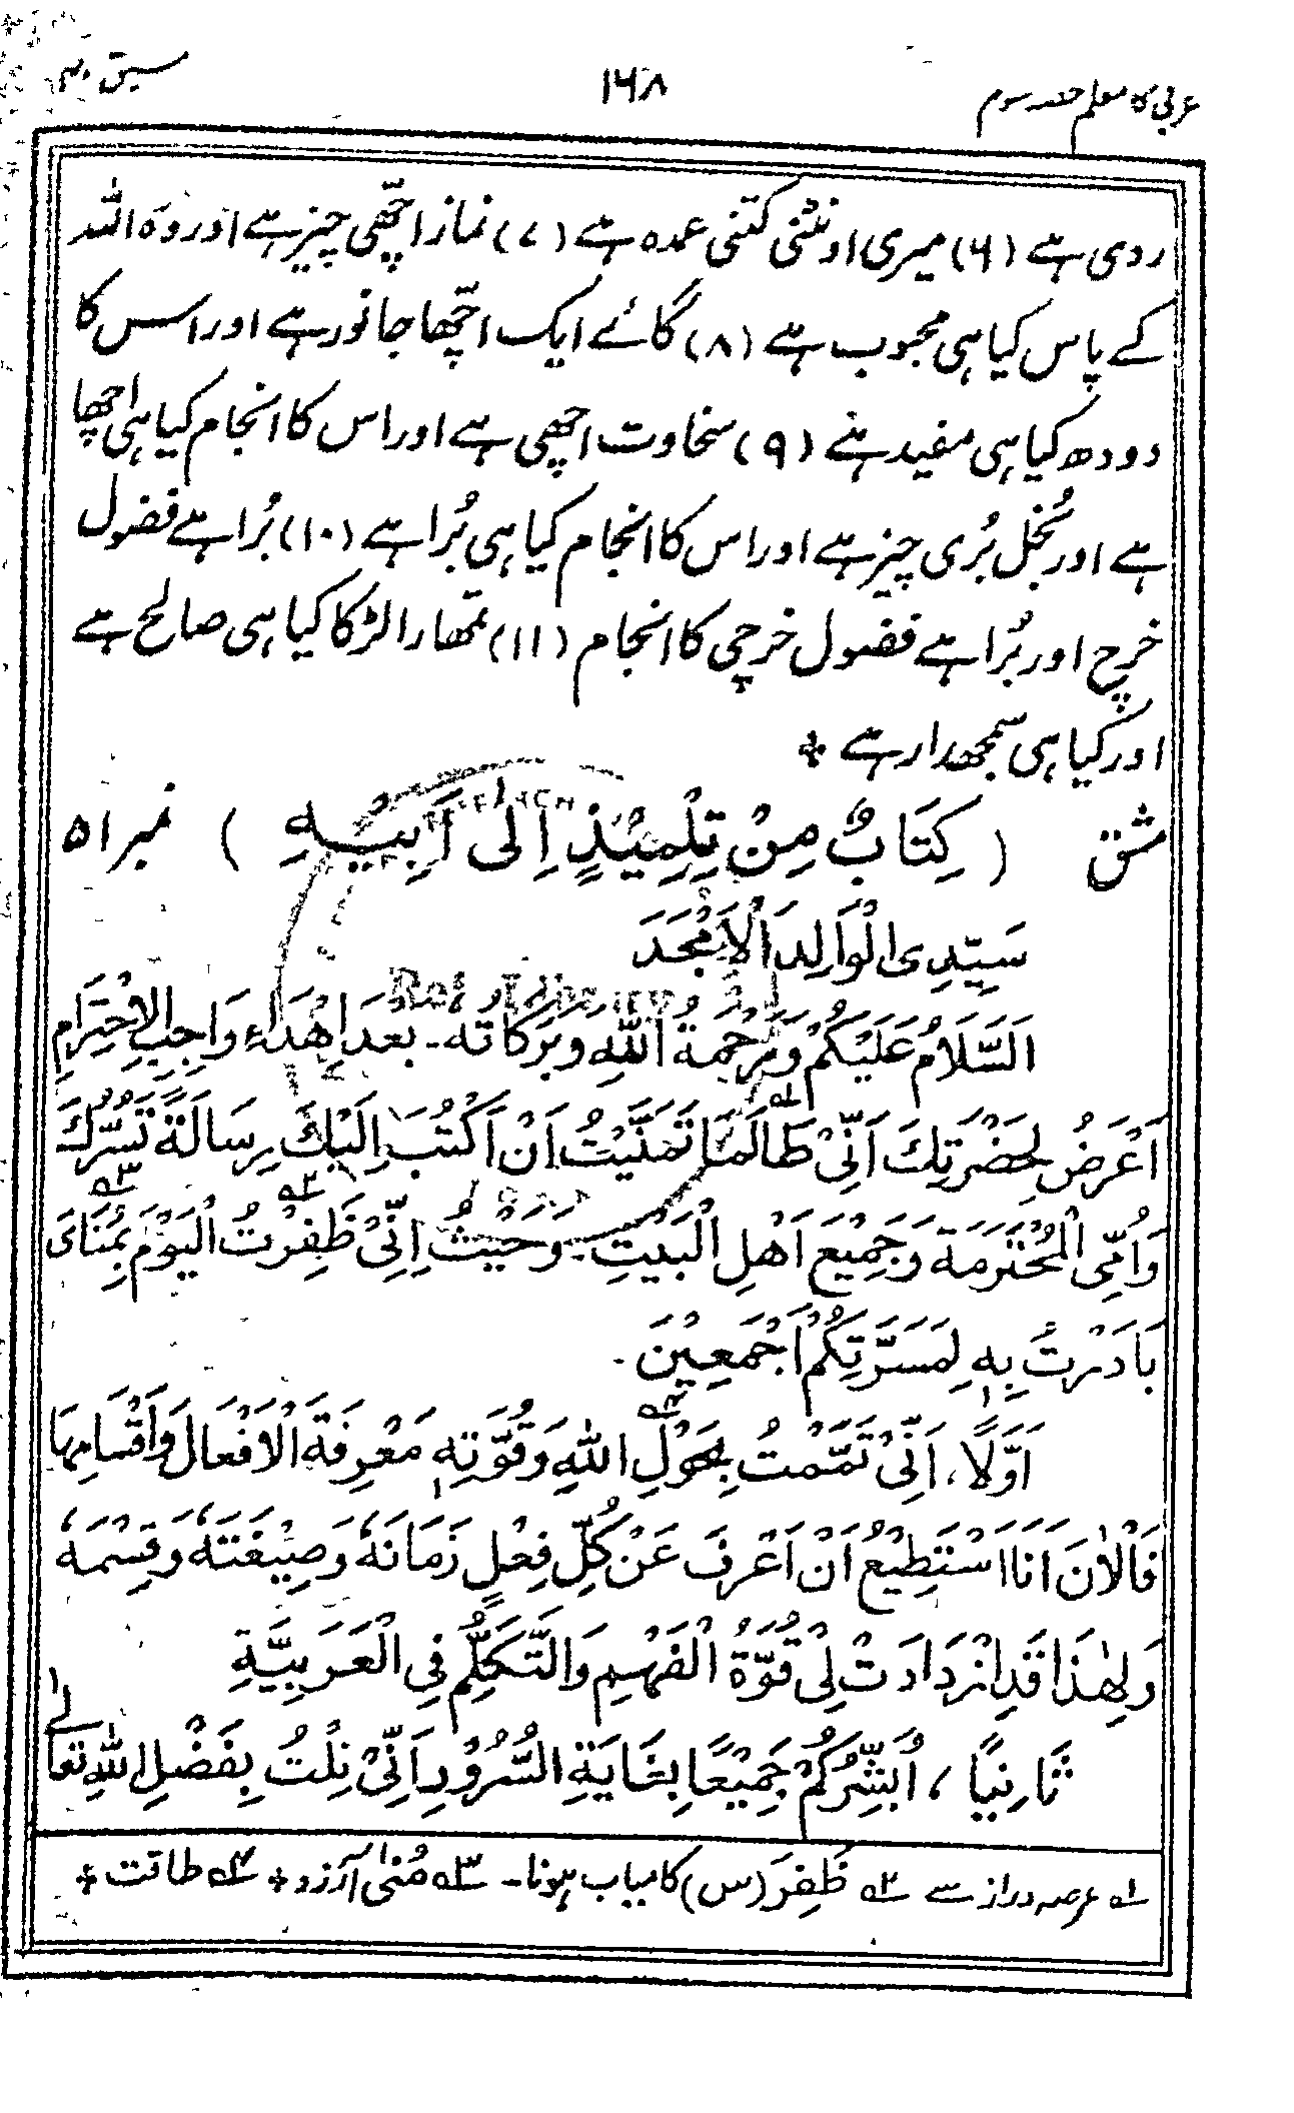 عربی کا معلم حصہ سوم ۱۶۸ سبق
ردی ہے (۶) میری اونٹنی کتنی عمدہ ہے (۷) نماز اچّھی چیز ہے اور وہ اللہ
کے پاس کیا ہی محبوب ہے (۸) گائے ایک اچّھا جانور ہے اور اس کا
دودھ کیا ہی مفید ہے (۹) سخاوت اچھی ہے اور اس کا انجام کیا ہی اچھا
ہے اور بُخل بُری چیز ہے اور اس کا انجام کیا ہی بُرا ہے (۱۰) بُرا ہے فضول
خرچ اور بُرا ہے فضول خرچی کا انجام (۱۱) تمّھارا لڑکا کیا ہی صالح ہے
اور کیا ہی سمجھدار ہے ٭
مشق (كِتَابٌ مِنْ تِلْمِيْذٍ اِلٰى اَبِيْهِ) نمبر ۵۱
سَيِّدِى الْوَالِدَ الْاَمْجَدَ
اَلسَّلَامُ عَلَيْكُمْ وَرَحْمَةُ اللهِ وَبَرَكَاتُه۔ بَعْدَ اِهْدَاءِ وَاجِبِ الْاِحْتِرَامِ
اَعْرَضُ لِحَضْرَتِكَ اَنِّىْ طَالَمَا لہ تَمَنَّيْتُ اَنْ اَكْتُبَ اِلَيْكَ رِسَالَةً تَسُرُّكَ
وَاُمِّى الْمُحْتَرَمَةَ وَجَمِيْعَ اَهْلِ الْبَيْتِ۔ وَحَيْثُ اِنِّىْ ظَفِرْتُ ۲ہ الْيَوْمَ بِمُنَاىَ ۳ہ
بَادَرْتُ بِهٖ لِمَسَرَّتِكُمْ اَجْمَعِيْنَ.
اَوَّلًا، اَنِّىْ تَمَّمْتُ بِحَوْلِ ۴ہ اللهِ وَقُوَّتِهٖ مَعْرِفَةَ الْاَفْعَالَ وَاَقْسَامِهَا
فَالْاٰنَ اَنَا اَسْتَطِيْعُ اَنْ اَعْرِفَ عَنْ كُلِّ فِعْلٍ زَمَانَهٗ وَصِيْغَتَهٗ وَقِسْمَهٗ
وَلِهٰذَا قَدِ ازْدَادَتْ لِىْ قُوَّةُ الْفَهْمِ وَالتَّكَلُّمِ فِى الْعَرَبِيَّةِ
ثَانِيًا، اُبَشِّرُكُمْ جَمِيْعًا بِغَايَةِ السُّرُوْرِ اَنِّىْ نِلْتُ بِفَضْلِ اللهِ تعالٰى
لہ عرصہ دراز سے ۲ہ ظَفِرَ (س) کامیاب ہونا۔ ۳ہ مُنٰی آرزو ٭ ۴ہ طاقت ٭